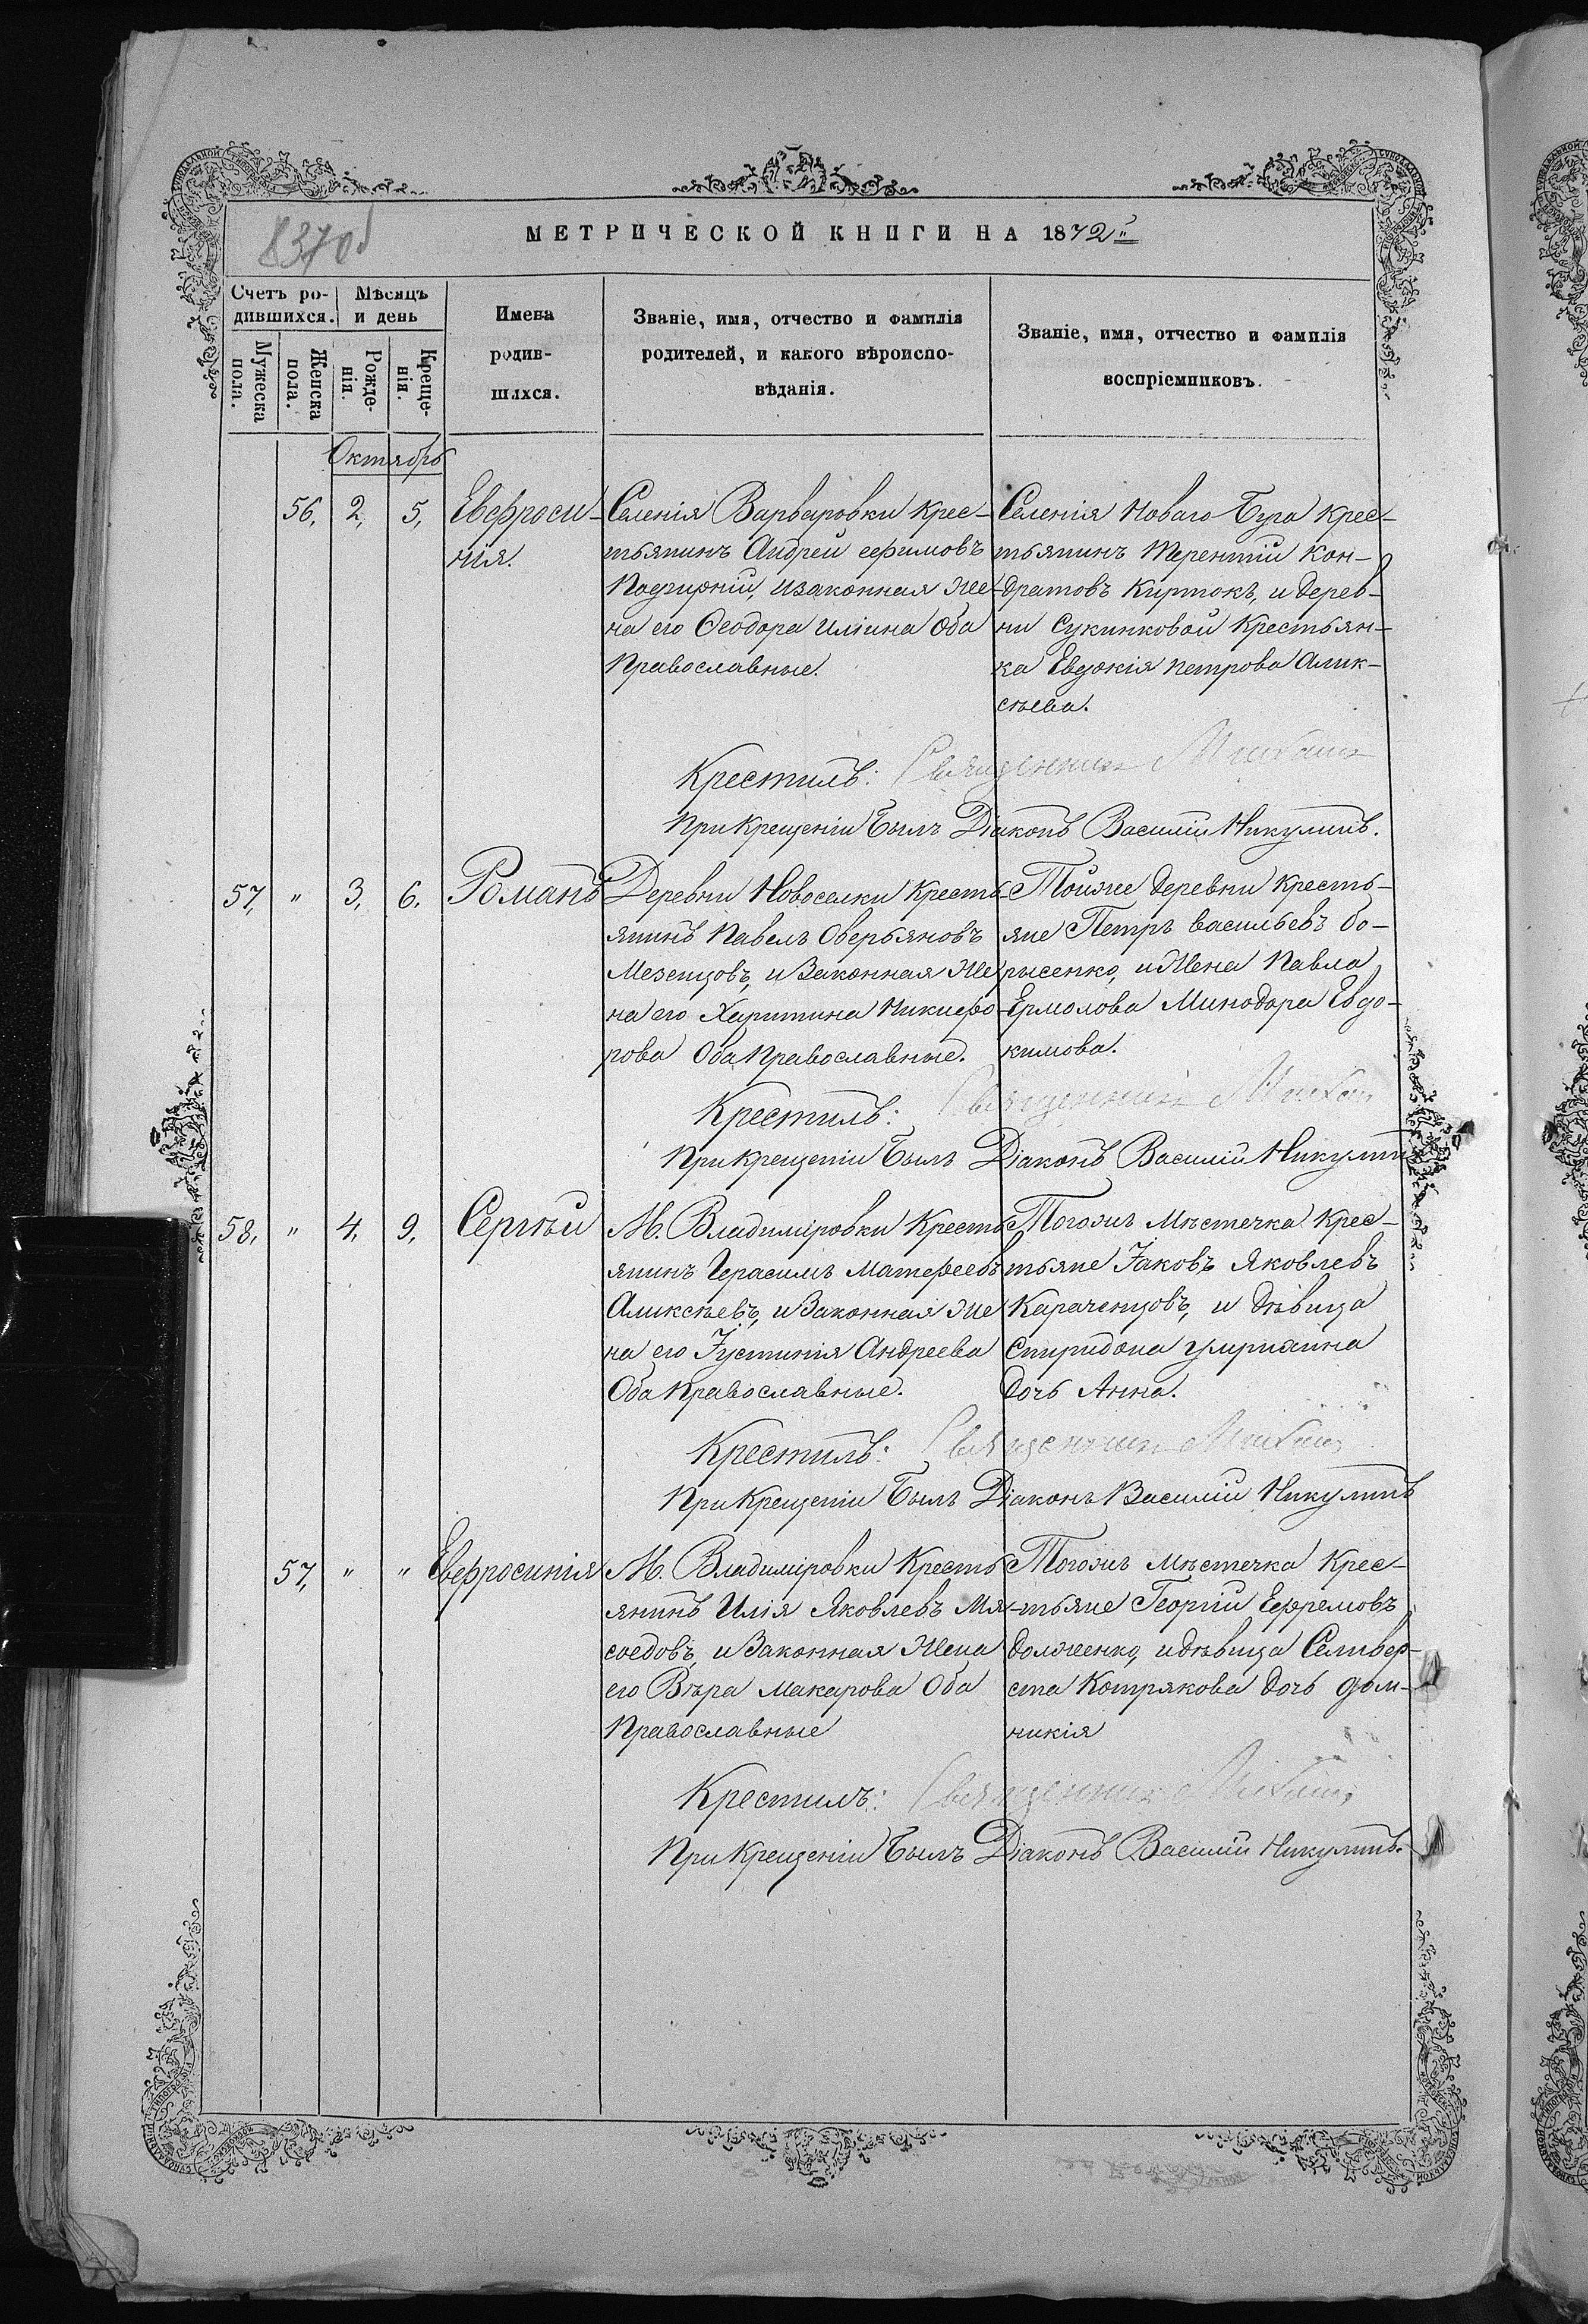 МЕТРИЧЕСКОЙ КНИГИ НА 1872
8370
Счетъ ро-
дившихся.
Мѣсяцъ
и день
Мужеска
пола.
Женска
пола.
Рожде-
нія.
Креще-
нія.
Имена
родив-
шихся.
Званіе, имя, отчество и фамилія
родителей, и какого вѣроиспо-
вѣданія.
Званіе, имя, отчество и фамилія
воспріемниковъ.
Октябрь
56, 2, 5,
Евфроси-
нія.
Селенія Варваровки крес-
тьянинъ Андрей ефимовъ
изаконная Же-
на его Феодора Иліина Оба
Православные.
Селенія Новаго Буга крес-
тьянинъ Терентій Кон-
дратовъ Киртокъ, и дерев-
ни Сукинковой Крестьян-
ка Евдокія петрова Алик-
сѣева.
Крестилъ: Священник Михаил
При крещеніи Былъ Діаконъ Василій Никулинъ.
57, " 3, 6.
Романъ
Деревни Новоселки Кресть-
янинъ Павелъ Оверьяновъ
Мезенцовъ, и Законная Же
на его Харитина Никифо-
рова Оба Православные.
Тойже деревни кресть-
яне Петръ васильевъ бо-
рисенко, и Жена Павла
Ермолова Минодора Евдо-
кимова.
Крестилъ: Священник Михаил
При крещеніи Былъ Діаконъ Василій Никулин
58, " 4, 9,
Сергѣй
М. Владиміровки Кресть
янинъ Герасимъ Матефеевъ
Аликсѣевъ, и Законная Же
на его Іустинія Андреева
Оба Православные.
Тогожъ Мѣстечка Крес-
тьяне Іаковъ Яковлевъ
Караченцовъ, и дѣвица
Спиридона
дочь Анна.
Крестилъ: Священник Михаил
При Крещеніи Былъ Діаконъ Василій Никулинъ
57, " "
Евфросинія
М. Владиміровки Кресть
янинъ Илія Яковлевъ Мя-
соедовъ, и Законная Жена
его Вѣра Макарова Оба
Православные
Тогожъ Мѣстечка Крес-
тьяне Георгій Ефремовъ
долженко, идѣвица Селивер-
ста Котрякова дочь дом-
никія
Крестилъ: Священник Михаил
При Крещеніи Былъ Діаконъ Василій Никулинъ.